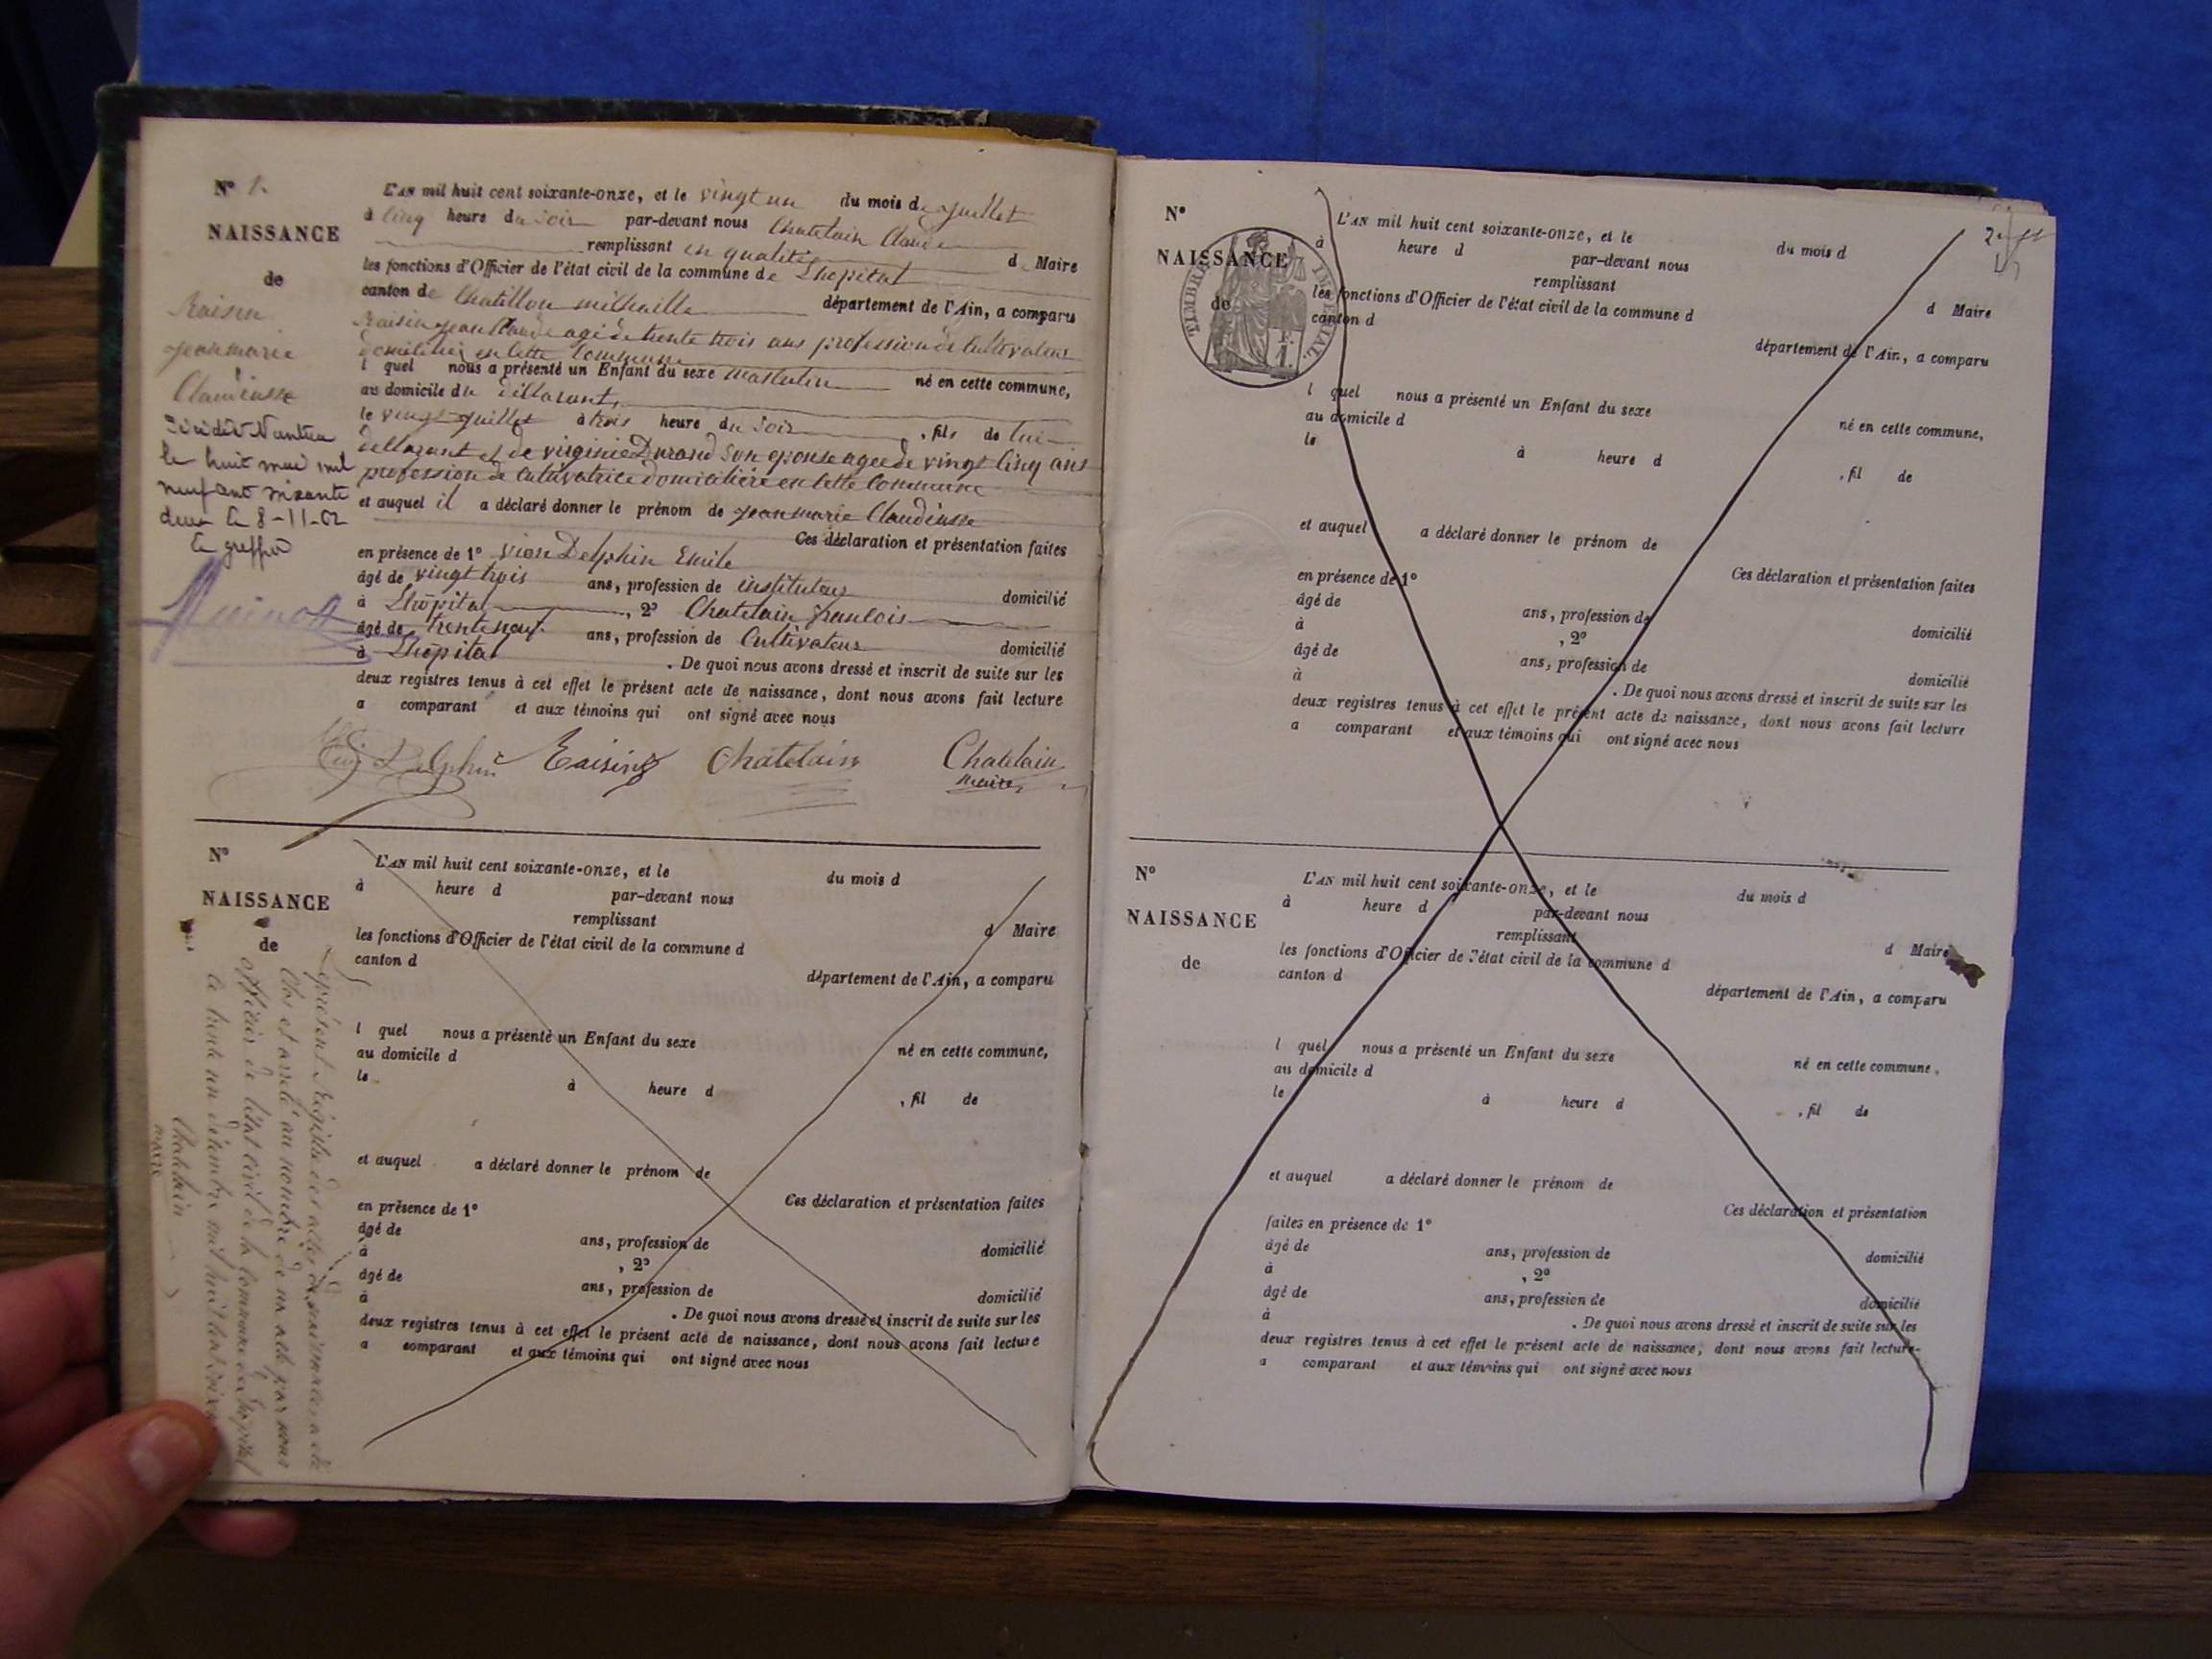 N° 1.
NAISSANCE
de
Raisin
jean marie
Claudiusse
Décédé à Nantua
le huit mai mil
neuf cent soixante
deux le 8-11-62
Le greffier
L'AN mil huit cent soixante-onze, et le vingt un du mois de juillet
à cinq heure du soir par-devant nous Chatelain Claude
remplissant en qualité d Maire
les fonctions d'Officier de l'état civil de la commune de Lhopital
canton de Chatillon michaille département de l'Ain, a comparu
Raisin jean Claude agé de trente trois ans profession de Cultivateur
domicilier en cette Commune
l quel nous a présenté un Enfant du sexe masculin né en cette commune,
au domicile du déclarant,
le vingt juillet à trois heure du soir , fils de lui
déclarant et de virginie Durand son eponse agee de vingt cinq ans
profession de cultivatrice domiciliére en cette Commune
et auquel il a déclaré donner le prénom de jean marie Claudiusse
Ces déclaration et présentation faites
en présence de 1° Delphin Emile
âgé de vingt trois ans, profession de instituteur domicilié
à Lhôpital , 2° Chatelain francois
âgé de trente neuf ans, profession de Cultivateur domicilié
à Lhopital . De quoi nous avons dressé et inscrit de suite sur les
deux registres tenus à cet effet le présent acte de naissance, dont nous avons fait lecture
a comparant et aux témoins qui ont signé avec nous
Delphin Raisin Chatelain Chatelain
maire
N°
NAISSANCE
de
L'AN mil huit cent soixante-onze, et le du mois d
à heure d par-devant nous
remplissant d Maire
les fonctions d'Officier de l'état civil de la commune d
canton d département de l'Ain, a comparu
l quel nous a présenté un Enfant du sexe né en cette commune,
au domicile d
le à heure d , fil de
et auquel a déclaré donner le prénom de
Ces déclaration et présentation faites
en présence de 1°
âgé de ans, profession de domicilié
à , 2°
âgé de ans, profession de domicilié
à . De quoi nous avons dressé et inscrit de suite sur les
deux registres tenus à cet effet le présent acte de naissance, dont nous avons fait lecture
a comparant et aux témoins qui ont signé avec nous
présent Régistre des actes de naissances a été
Clos et arrêté au nombre de un acte par nous
officier de l'état civil de la commune de Lhopital
le trente un décembre mil huit cent
Chatelain
maire
N°
NAISSANCE
de
TIMBRE IMPERIAL.
L'AN mil huit cent soixante-onze, et le du mois d
à heure d par-devant nous
remplissant d Maire
les fonctions d'Officier de l'état civil de la commune d
canton d département de l'Ain, a comparu
l quel nous a présenté un Enfant du sexe né en cette commune,
au domicile d
le à heure d , fil de
et auquel a déclaré donner le prénom de
Ces déclaration et présentation faites
en présence de 1°
âgé de ans, profession de domicilié
à , 2°
âgé de ans, profession de domicilié
à . De quoi nous avons dressé et inscrit de suite sur les
deux registres tenus à cet effet le présent acte de naissance, dont nous avons fait lecture
a comparant et aux témoins qui ont signé avec nous
N°
NAISSANCE
de
L'AN mil huit cent soixante-onze, et le du mois d
à heure d par-devant nous
remplissant d Maire
les fonctions d'Officier de l'état civil de la commune d
canton d département de l'Ain, a comparu
l quel nous a présenté un Enfant du sexe né en cette commune,
au domicile d
le à heure d , fil de
et auquel a déclaré donner le prénom de
Ces déclaration et présentation
faites en présence de 1°
âgé de ans, profession de domicilié
à , 2°
âgé de ans, profession de domicilié
à . De quoi nous avons dressé et inscrit de suite sur les
deux registres tenus à cet effet le présent acte de naissance, dont nous avons fait lecture
a comparant et aux témoins qui ont signé avec nous